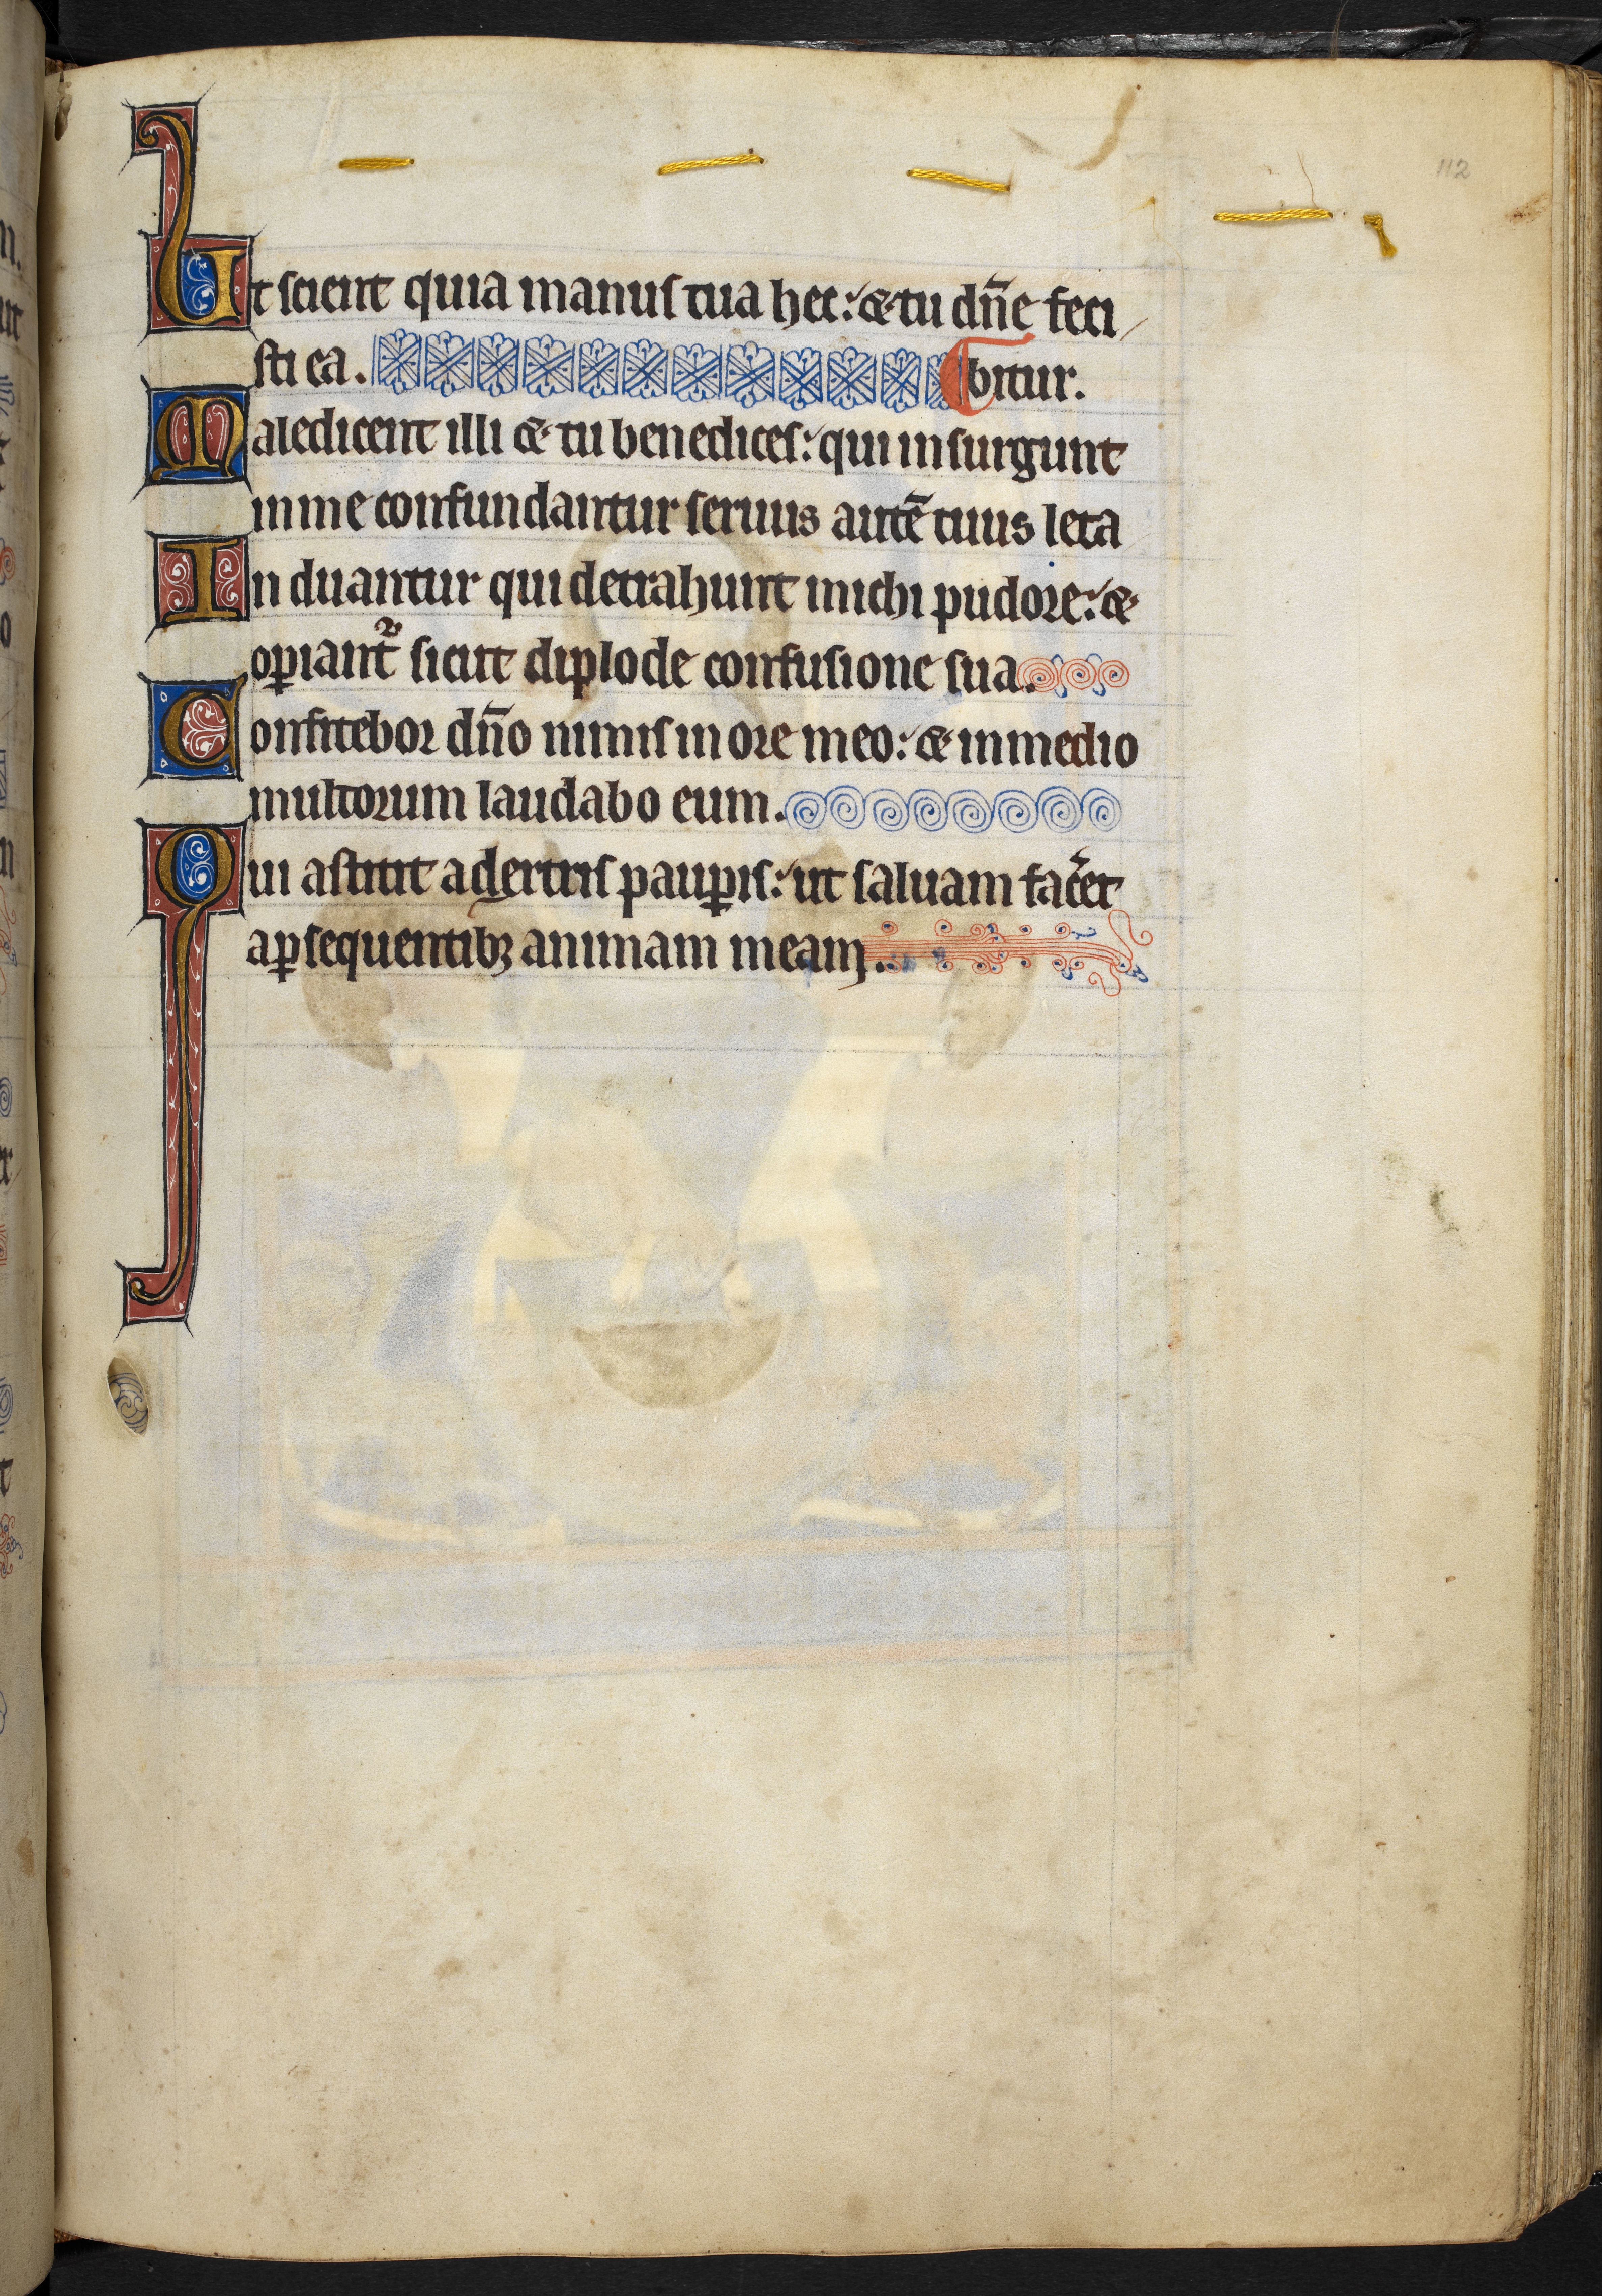 112
Ut scient quia manus tua hec: & tu dn̄e feci
sti ea. bitur.
Maledicent illi & tu benedices: qui insurgunt
in me confundantur seruus autē tuus leta
Induantur qui detrahunt michi pudore: &
oꝑiant᷑ sicut diploide confusione sua.
Confitebor dn̄o nimis in ore meo: & in medio
multorum laudabo eum.
Qui astitit a dextris pauꝑis: ut saluam fac̄et
a ꝑsequentibꝫ animam meam.